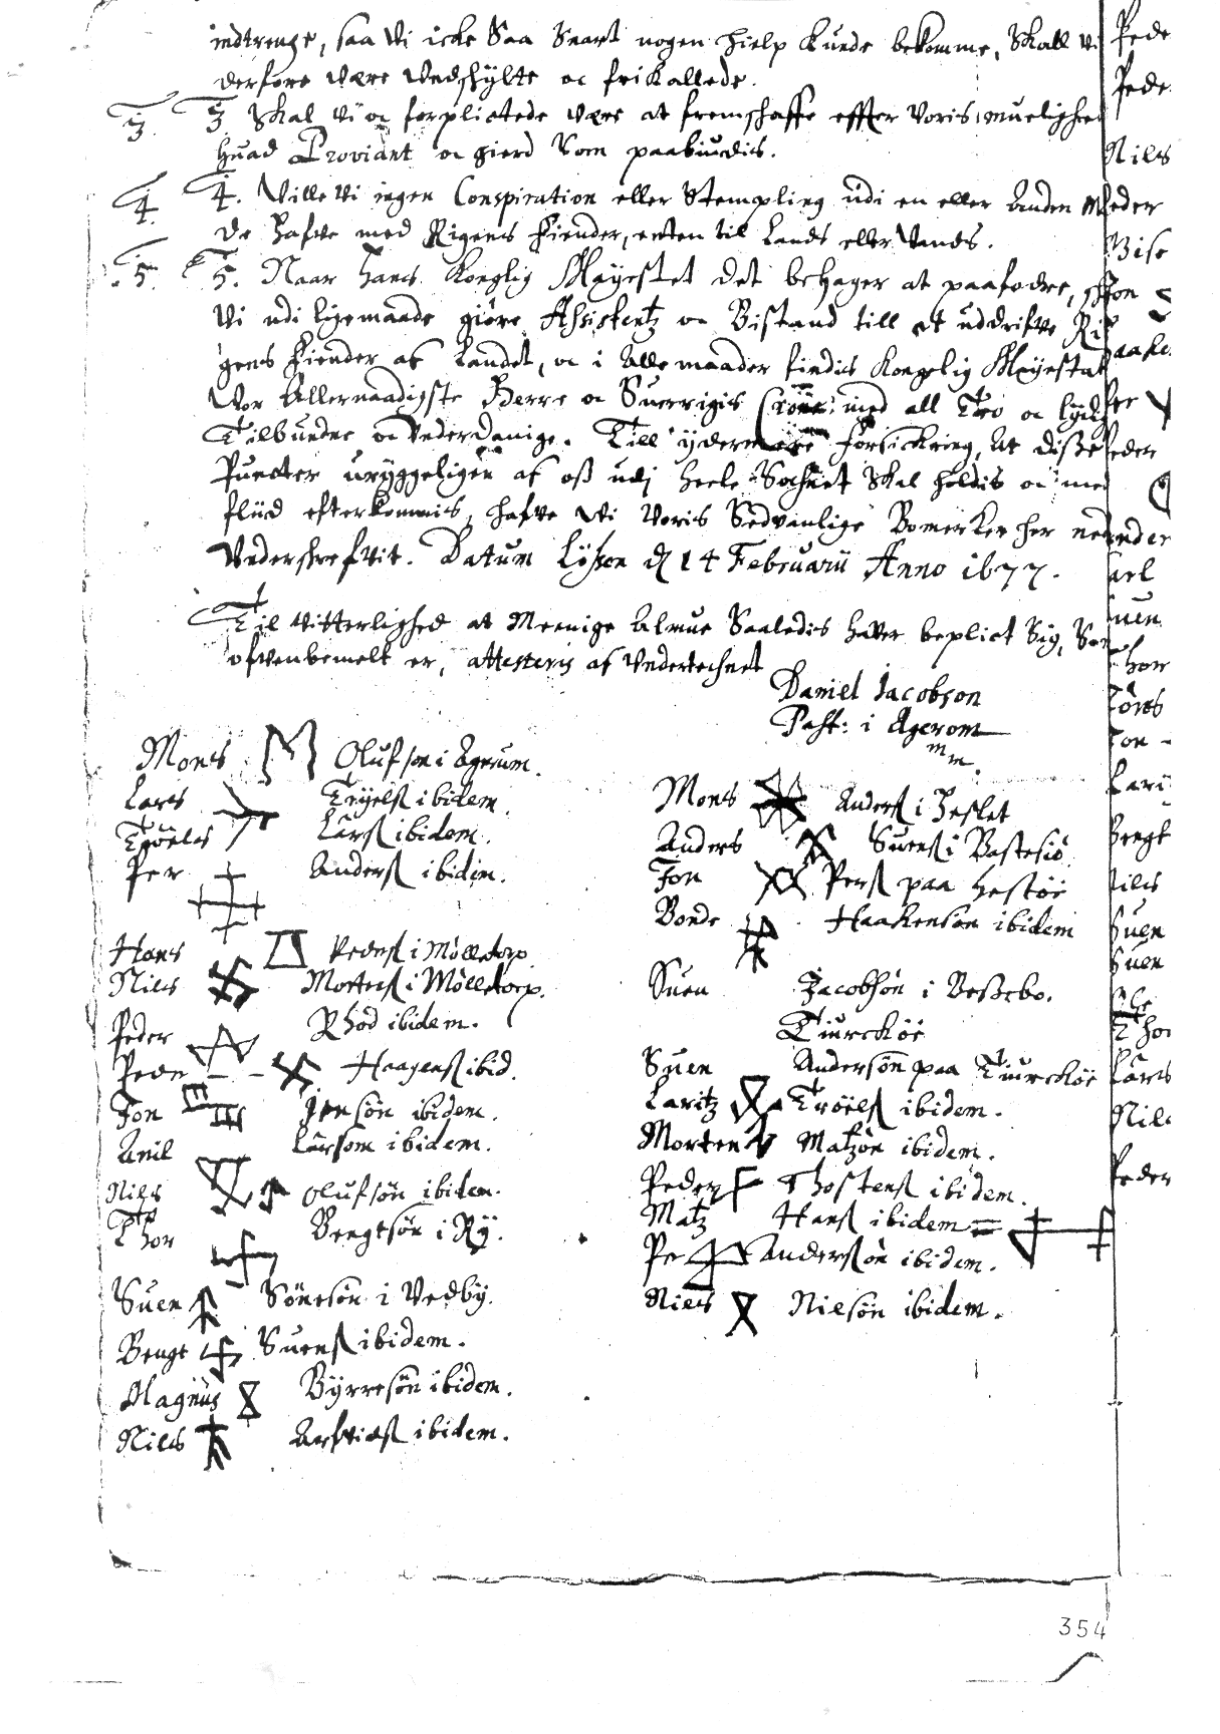 indtrenge, saa Vi icke Saa Snart nogen hielp kunde bekomme, Skall vi
derfore være Undskylte oc frikallede.
3. 3 Skal Vi oc forplictede være at fremschaffe effter Voris muelighed
huad Proviant oc gierd Som paabiudis.
4. 4. Ville Vi ingen Conspiration eller Stempling udi en eller Anden
de hafve med Rigens Fiender, enten til Lands eller Vands.
5. 5. Naar hans Konglig Mayestet det behager at paafodre,
Vi udi ligemaade giöre Assistentz oc Bistand till at uddrifve Ri
gens Fiender af Landet, oc i Alle maader findis Kongelig Mayestat
Vor Allernaadigste Herre oc Suerrigis Crone: med all Tro oc
Tilbundne oc Underdanige. Till ydermere forsickring, At disse
Puncter uryggeligen af oss udj heele Sochnet Skal holdis oc med
fliid efterkommis, hafve Vi Voris Sedvanlige Bomerker her
Underskrefvit. Datum Lösen d 14 Februarii Anno 1677.
Til Vitterlighed at Meenige Almue Saaledis haver beplict Sig, Som
ofvenbemelt er, attesteris af Undertechnet
Daniel Jacobson
Past: i Agerom
mm
Mons Olufson i Agerum.
Lars Tryels ibidem.
Troels Lars ibidem.
Per Anders ibidem.
Hans Peders i Mölletorp
Nils Mortens i Mölletorp.
Peder Rhod ibidem.
Peder Haagens ibid.
Jon Jensön ibidem.
Anil Larsom ibidem.
Nils Olufsön ibidem.
Thor Bengtsön i Rÿ.
Suen Sönesön i Vedbÿ.
Bengt Suens ibidem.
Magnus Byrresön ibidem.
Nils Arfvids ibidem.
Mons Anders i Heslet
Anders Suens i Bastesiö
Jon Pers paa Hestöe
Bonde Haakensön ibidem
Suen Jacobsön i Bessebo.
Tiurcköe
Suen Andersön paa Tiurcköe
Laritz Tröels ibidem.
Morten Matzön ibidem.
Peder Thostens ibidem.
Matz Hans ibidem
Pe Andersön ibidem.
Niels Nilsön ibidem.
Pede
Pede
Nils
eder
Bise
Jon
aake
eder
nder
arl
uen
Thor
Töres
Jon
Lari
Bengt
Nils
Suen
Suen
Tho
Lars
Nils
Peder
354